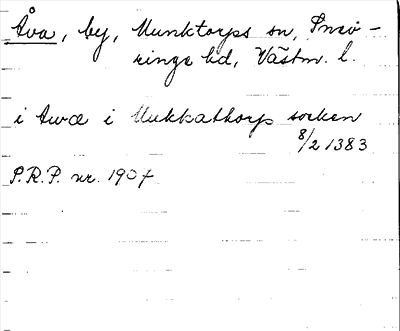 Åva, by, Munktorps sn, Snevringe hd, Västm. l.
i Awæ i Mukkathorp socken
8/2 1383
P.R.P. nr. 1907